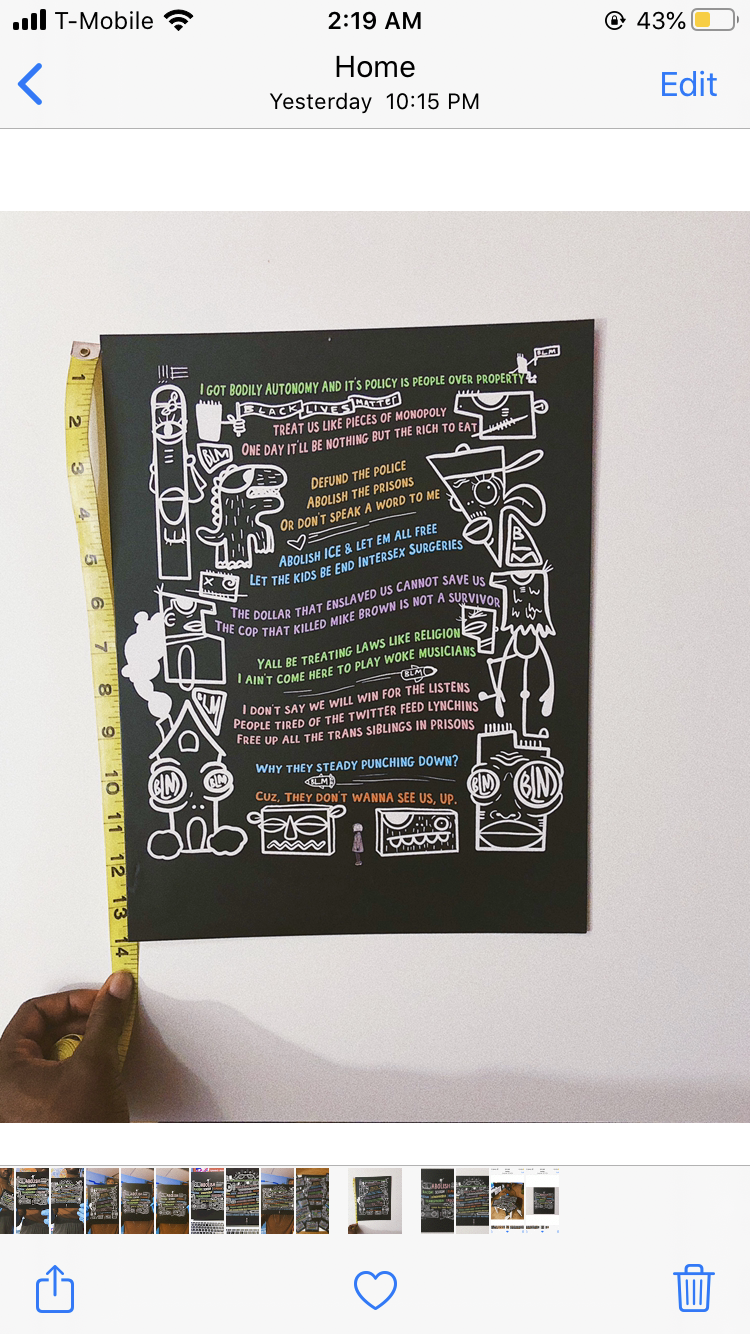 T-Mobile
2:19 AM
43%
Home
Yesterday 10:15 PM
Edit
BLM
I GOT BODILY AUTONOMY AND IT'S POLICY IS PEOPLE OVER PROPERTY
BLACK LIVES MATTER
TREAT US LIKE PIECES OF MONOPOLY
ONE DAY IT'LL BE NOTHING BUT THE RICH TO EAT
BLM
DEFUND THE POLICE
ABOLISH THE PRISONS
OR DON'T SPEAK A WORD TO ME
BLM
ABOLISH ICE & LET EM ALL FREE
LET THE KIDS BE END INTERSEX SURGERIES
THE DOLLAR THAT ENSLAVED US CANNOT SAVE US
THE COP THAT KILLED MIKE BROWN IS NOT A SURVIVOR
YALL BE TREATING LAWS LIKE RELIGION
I AIN'T COME HERE TO PLAY WOKE MUSICIANS
BLM
BLM
I DON'T SAY WE WILL WIN FOR THE LISTENS
PEOPLE TIRED OF THE TWITTER FEED LYNCHINS
FREE UP ALL THE TRANS SIBLINGS IN PRISONS
WHY THEY STEADY PUNCHING DOWN?
BLM
BLM
BLM
BLM
BLM
CUZ, THEY DON'T WANNA SEE US, UP.
1
2
3
4
5
6
7
8
9
10
11
12
13
14